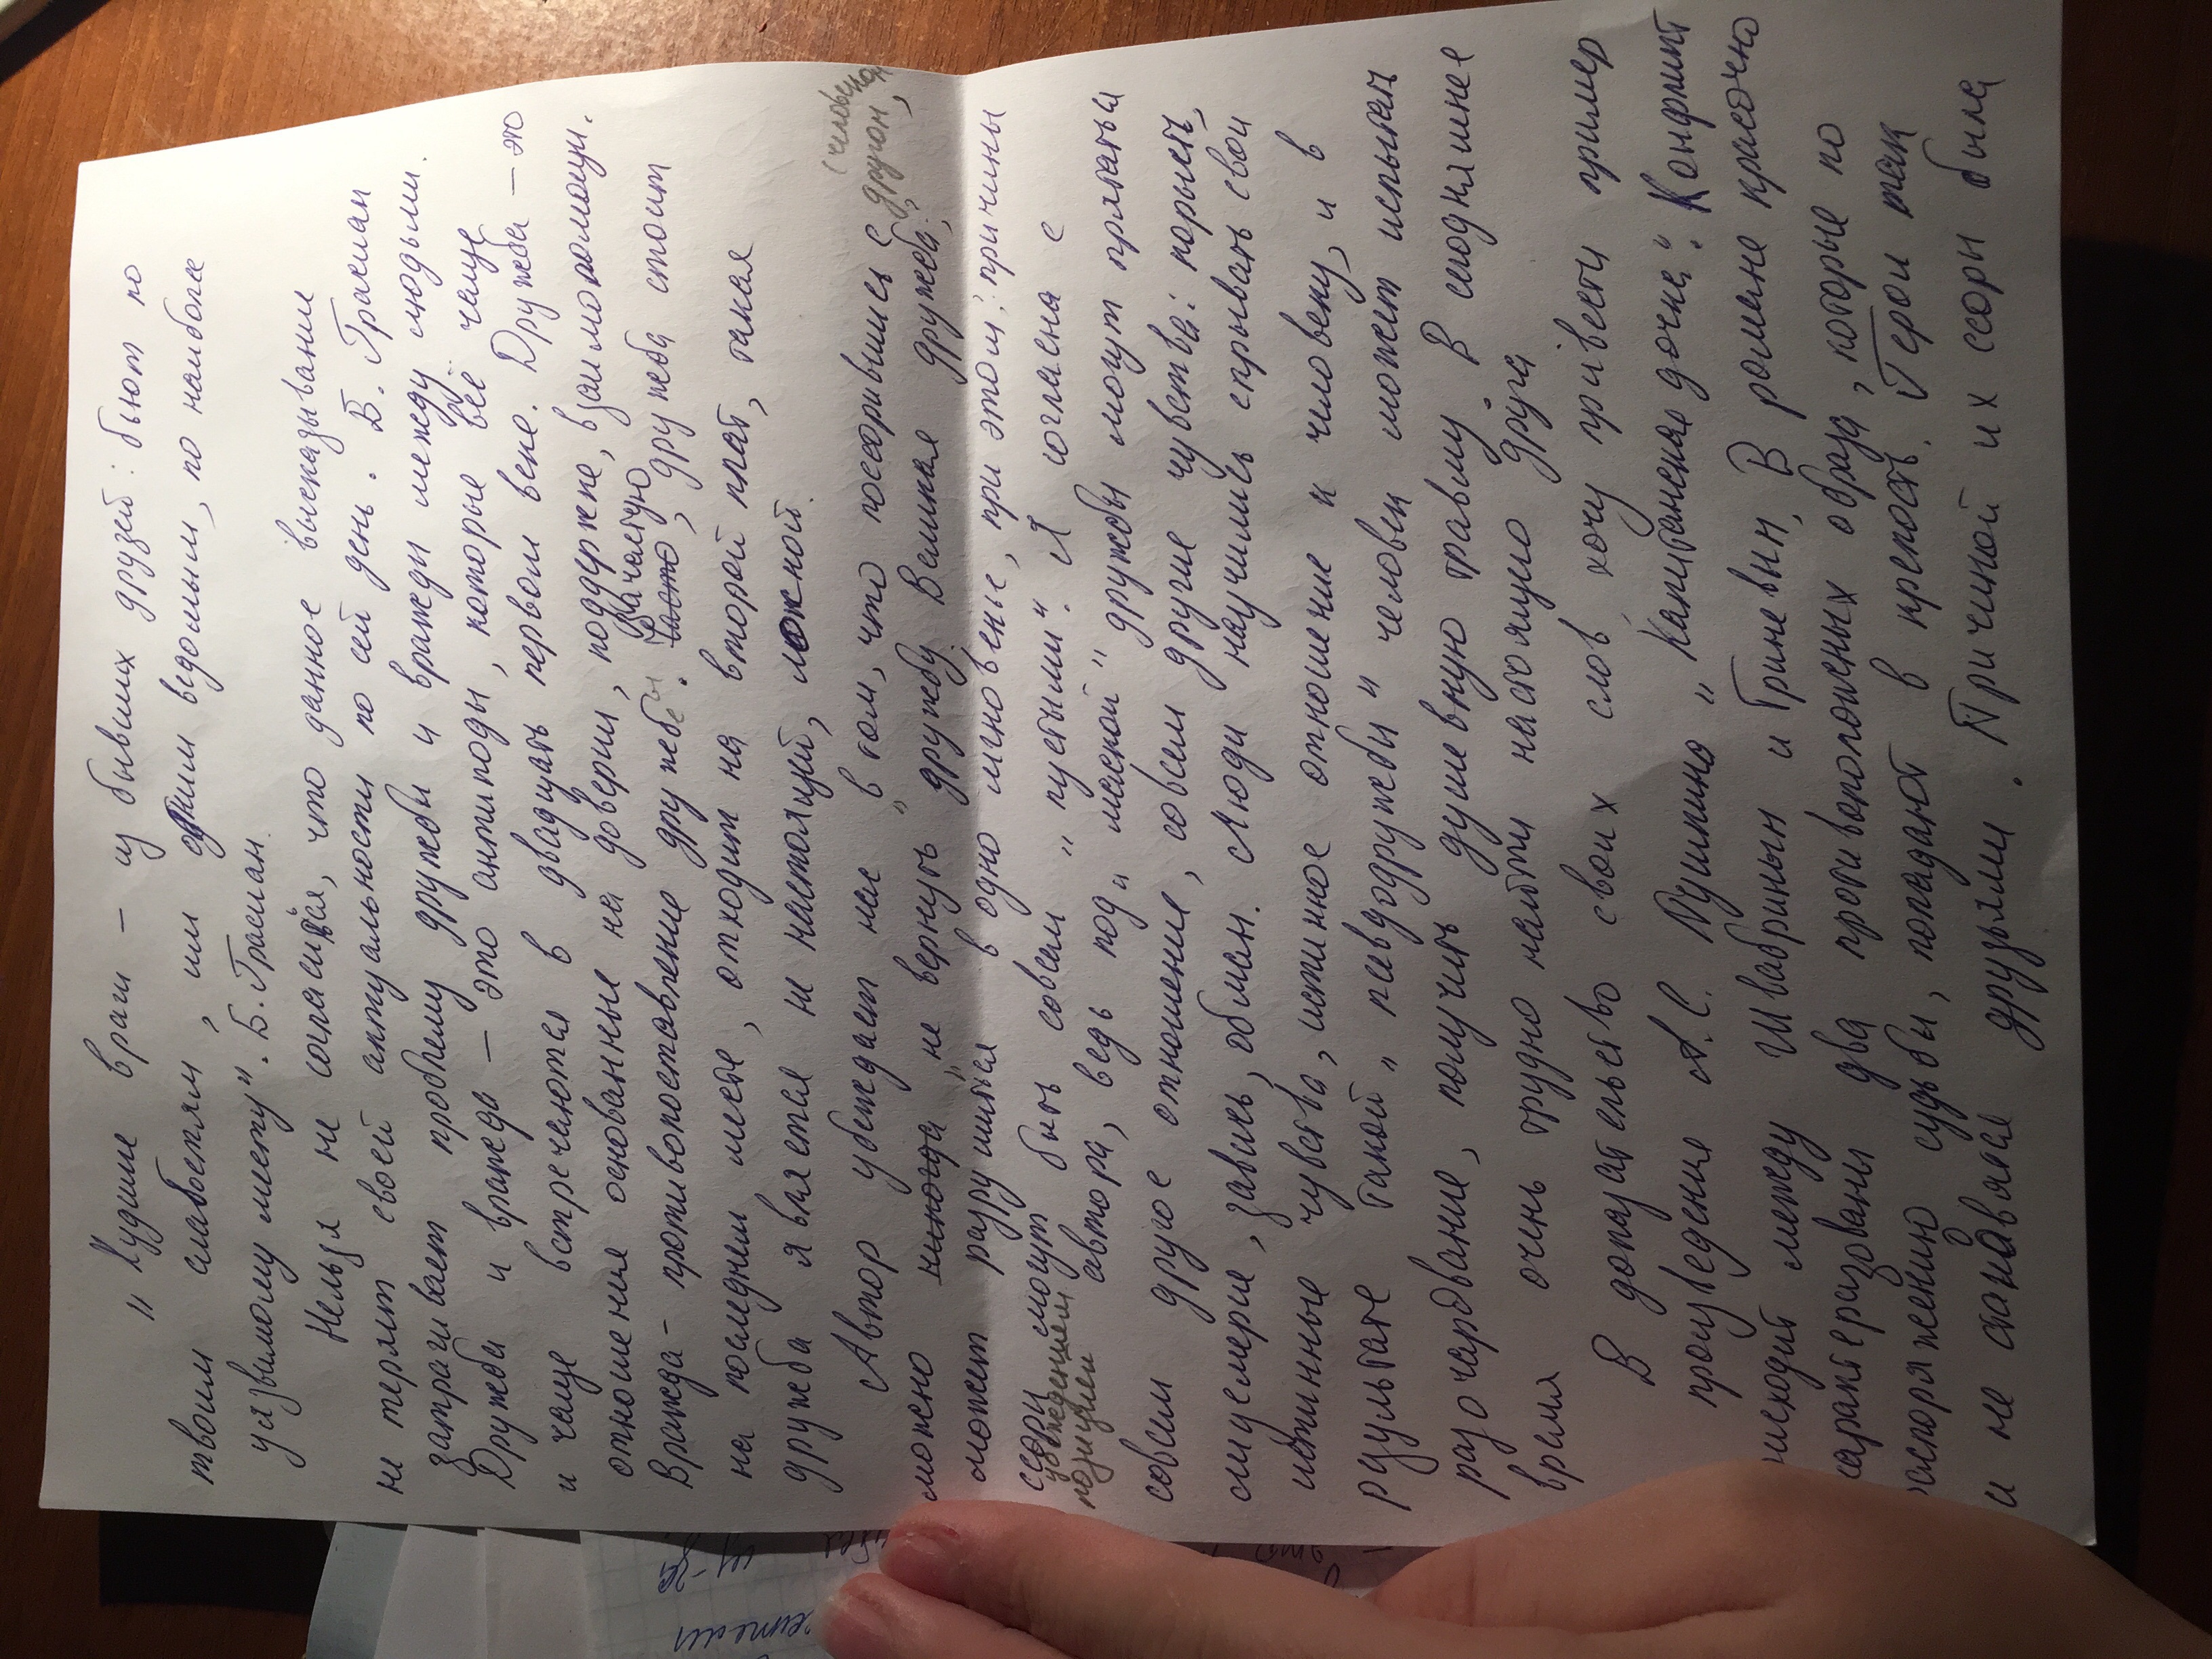 "Худшие враги – из бывших друзей: бьют по
твоим слабостям, им одним ведомым, по наиболее
уязвимому месту". Б. Грасиан.
Нельзя не согласиться, что данное высказывание
не теряет своей актуальности по сей день. Б. Грасиан
затрагивает проблему дружбы и вражды между людьми.
Дружба и вражда – это антиподы, которые всё чаще
и чаще встречаются в двадцать первом веке. Дружба – это
отношения основанные на доверии, поддержке, взаимопомощи.
Вражда – противопоставление дружбы. Зачастую, дружба стоит
на последнем месте, отходит на второй план, такая
дружба является не настоящей, ложной.
(человеком
Автор убеждает нас в том, что поссорившись с другом,
можно никогда "не вернуть" дружбу. Великая дружба,
может разрушится в одно мгновенье, при этом, причины
ссоры могут быть совсем "пустыми". Я согласна с
убеждением
позицией автора, ведь под "маской" дружбы могут прятаться
совсем другое отношение, совсем другие чувства: корысть,
лицемерие, зависть, обман. Люди научились скрывать свои
истинные чувства, истинное отношение к человеку, и в
результате такой "псевдодружбы" человек может испытать
разочарование, получить душевную травму. В сегодняшнее
время очень трудно найти настоящую друга
В доказательство своих слов хочу привести пример
произведения А.С. Пушкина "Капитанская дочка". Конфликт
происходит между Швабриным и Гриневым. В романе красочно
характеризованы два противоположеных образа, которые по
распоряжению судьбы, попадают в крепость. Герои так
и не становятся друзьями. Причиной их ссоры была